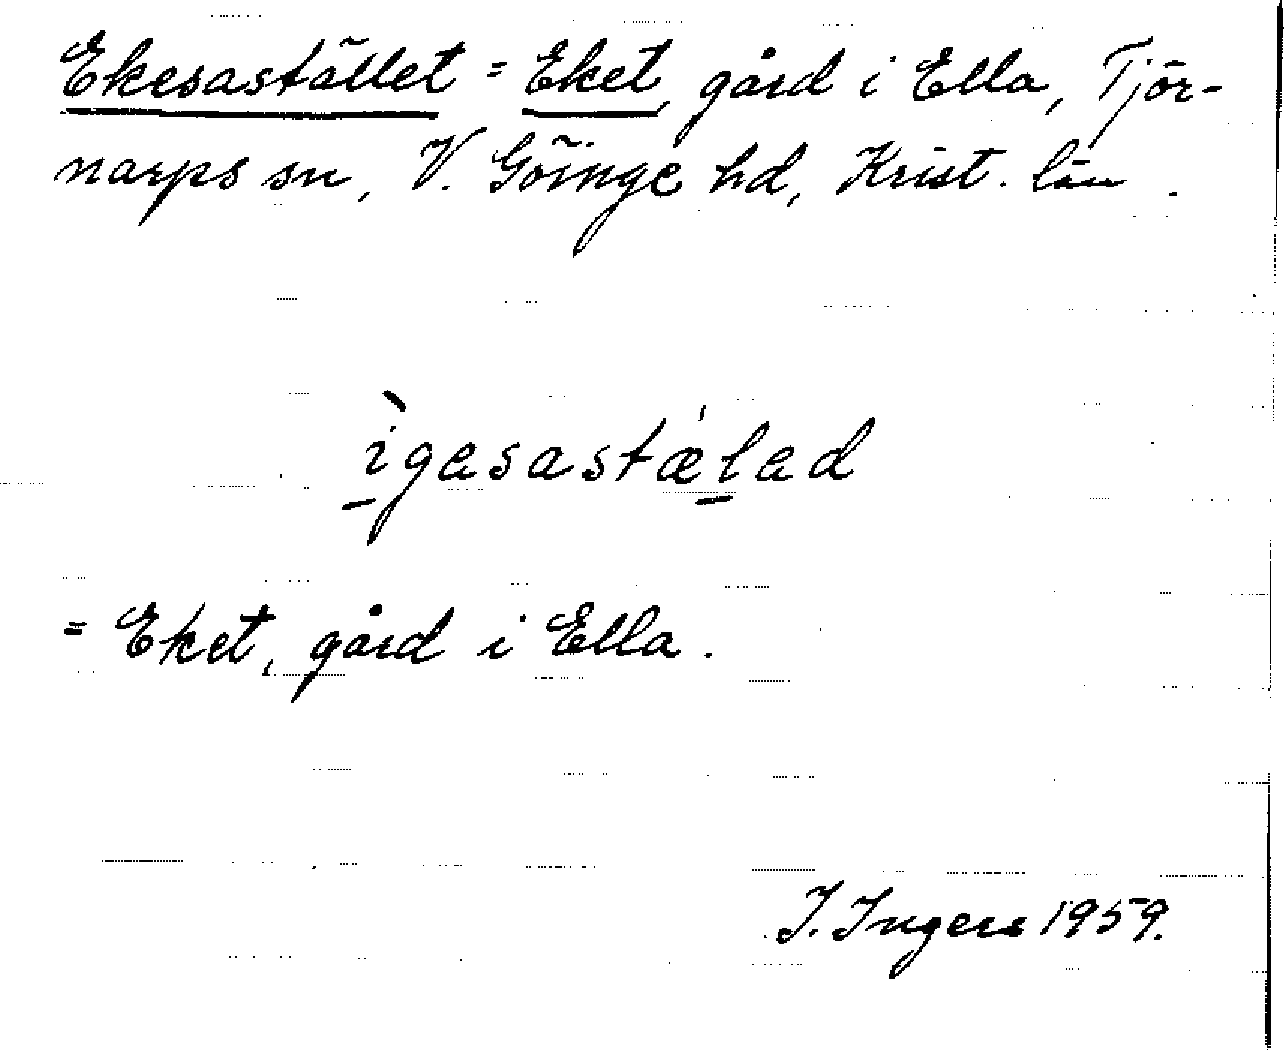 Ekesastället = Eket, gård i Ella, Tjör-
narps sn, V. Göinge hd, Krist. län.
ìgesastǽled
= Eket, gård i Ella.
I. Ingers 1959.